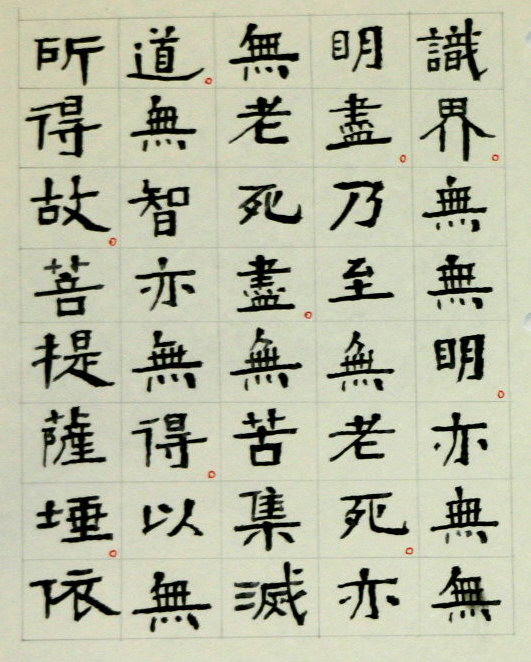 識界。無無明。亦無無
明盡。乃至無老死。亦
無老死盡。無苦集滅
道。無智亦無得。以無
所得故。菩提薩埵。依